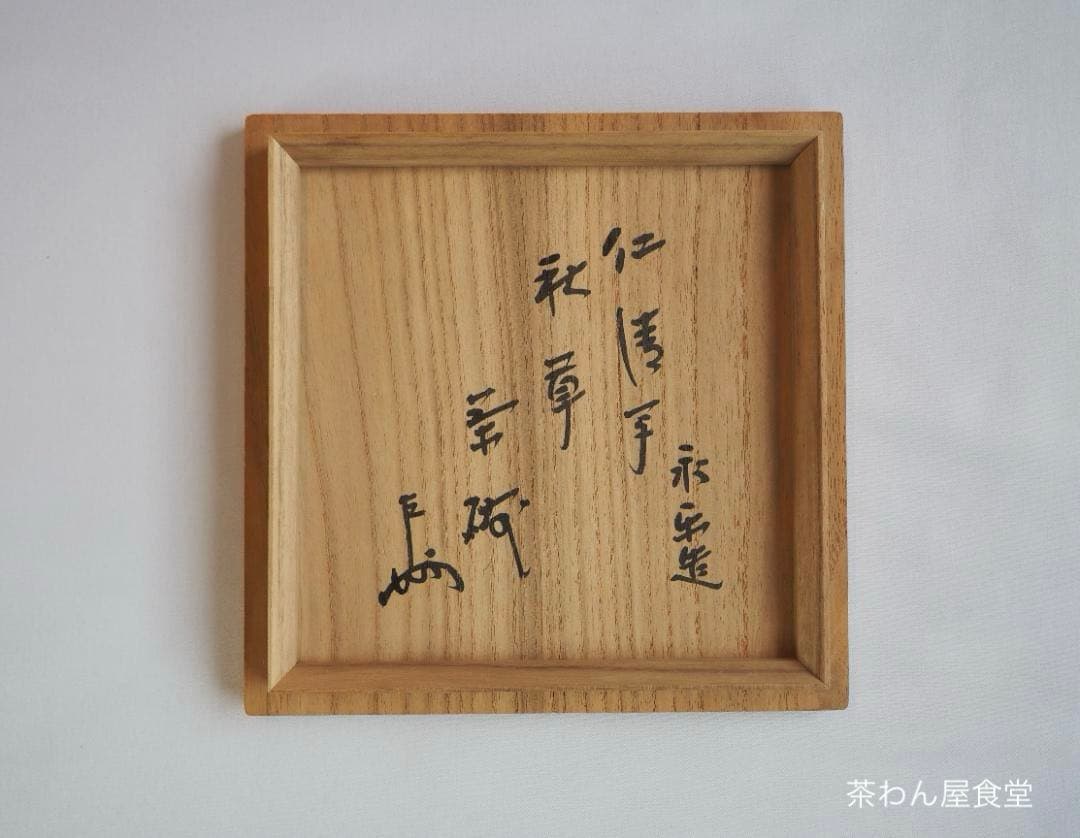 永楽造
仁清手
秋草
茶碗
茶わん屋食堂